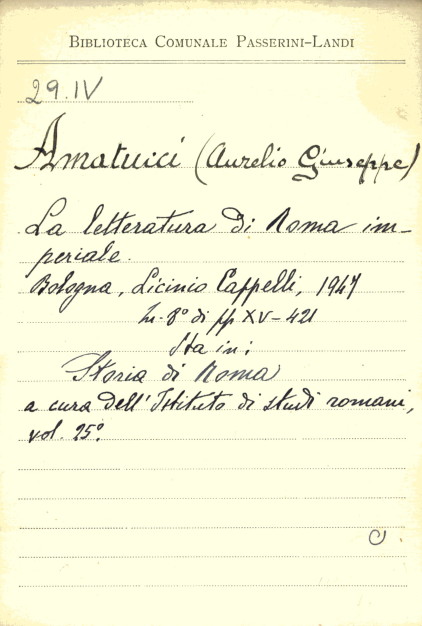 BIBLIOTECA COMUNALE PASSERINI-LANDI
29.IV
Amatucci (Aurelio Giuseppe)
La letteratura di Roma im-
periale.
Bologna, Licinio Cappelli, 1947
In-8° di pp XV-421
Sta in:
Storia di Roma
a cura dell'Istituto di studi romani,
vol. 25°.